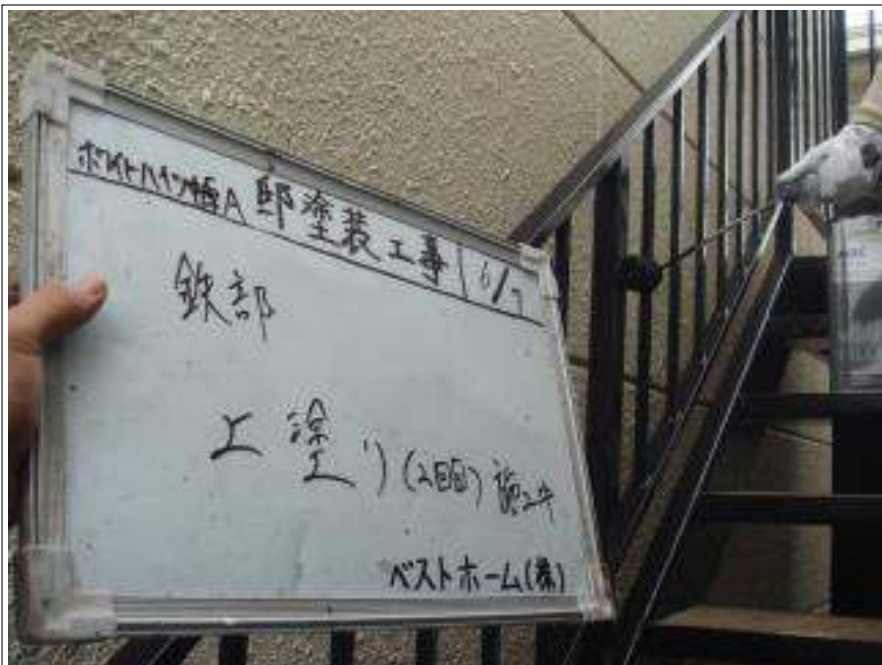 ホワイトハイツ梅A 邸塗装工事 6/7
鉄部
上塗り(2回目) 施工中
ベストホーム(株)